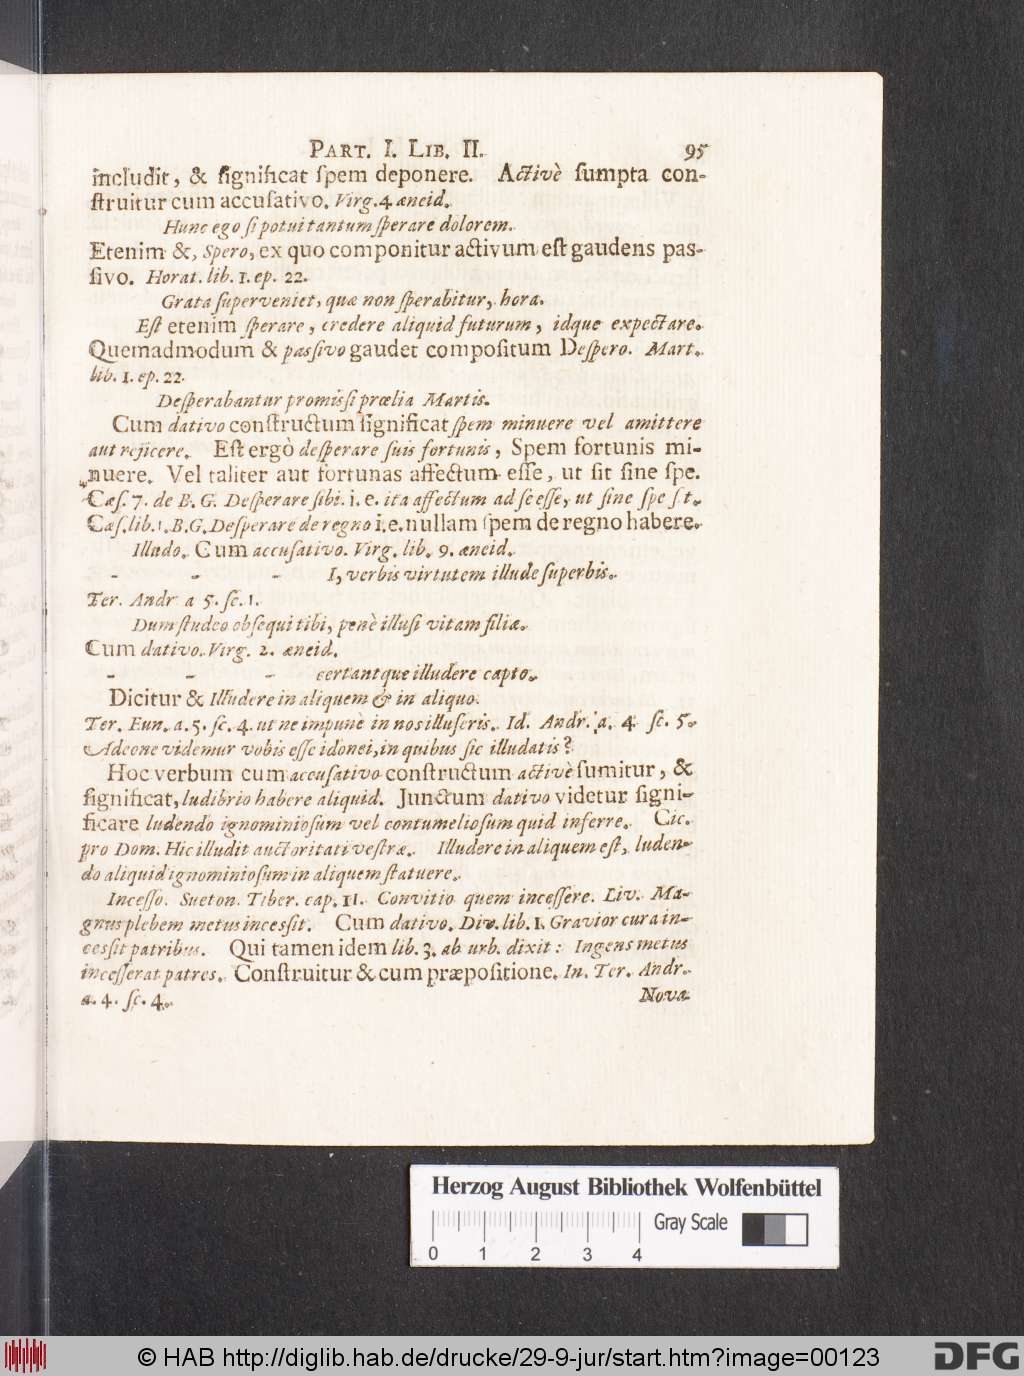 PART. I. LIB. II. 95
includit, & significat spem deponere. Activè sumpta con-
struitur cum accusativo. Virg. 4 æneid.
Hunc ego si potui tantum sperare dolorem.
Etenim &, Spero, ex quo componitur activum est gaudens pas-
sivo. Horat. lib. 1. ep. 22.
Grata superveniet, quæ non sperabitur, hora.
Est etenim sperare, credere aliquid futurum, idque expectare.
Quemadmodum & passivo gaudet compositum Despero. Mart.
lib. 1. ep. 22.
Desperabantur promissi prælia Martis.
Cum dativo constructum significat spem minuere vel amittere
aut rejicere. Est ergò desperare suis fortunis, Spem fortunis mi-
nuere. Vel taliter aut fortunas affectum esse, ut sit sine spe.
Cæs. 7. de B. G. Desperare sibi. i. e. ita affectum ad se esse, ut sine spe sit.
Cæs. lib. 1. B. G. Desperare de regno i. e. nullam spem de regno habere.
Illudo. Cum accusativo. Virg. lib. 9. æneid.
- - - I, verbis virtutem illude superbis.
Ter. Andr a 5. sc. 1.
Dum studeo obsequi tibi, penè illusi vitam filiæ.
Cum dativo. Virg. 2. æneid.
- - - certantque illudere capto.
Dicitur & Illudere in aliquem & in aliquo.
Ter. Eun. a. 5. sc. 4. ut ne impunè in nos illuseris. Id. Andr. a. 4 sc. 5.
Adeone videmur vobis esse idonei, in quibus sic illudatis?
Hoc verbum cum accusativo constructum activè sumitur, &
significat, ludibrio habere aliquid. Junctum dativo videtur signi-
ficare ludendo ignominiosum vel contumeliosum quid inferre. Cic.
pro Dom. Hic illudit auctoritati vestræ. Illudere in aliquem est, luden-
do aliquid ignominiosum in aliquem statuere.
Incesso. Sueton. Tiber. cap. 11. Convitio quem incessere. Liv. Ma-
gnus plebem metus incessit. Cum dativo. Div. lib. 1. Gravior cura in-
cessit patribus. Qui tamen idem lib. 3. ab urb. dixit: Ingens metus
incesserat patres. Construitur & cum præpositione. In. Ter. Andr.
a. 4. sc. 4. Nova
Herzog August Bibliothek Wolfenbüttel
Gray Scale
0 1 2 3 4
© HAB http://diglib.hab.de/drucke/29-9-jur/start.htm?image=00123 DFG